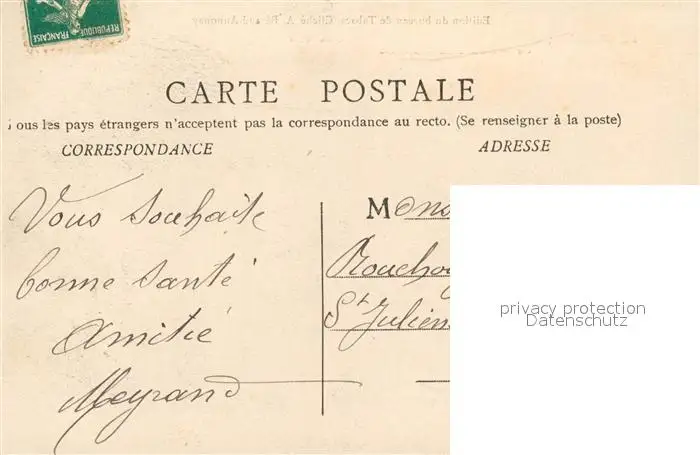 RÉPUBLIQUE FRANÇAISE
Edition du bureau de Tabacs. Cliché A. Annonay
CARTE POSTALE
ous les pays étrangers n'acceptent pas la correspondance au recto. (Se renseigner à la poste)
CORRESPONDANCE
ADRESSE
Vous souhaite
bonne santé
Amitié
Meyrand
Mons
Rouchou
St Julien
privacy protection
Datenschutz